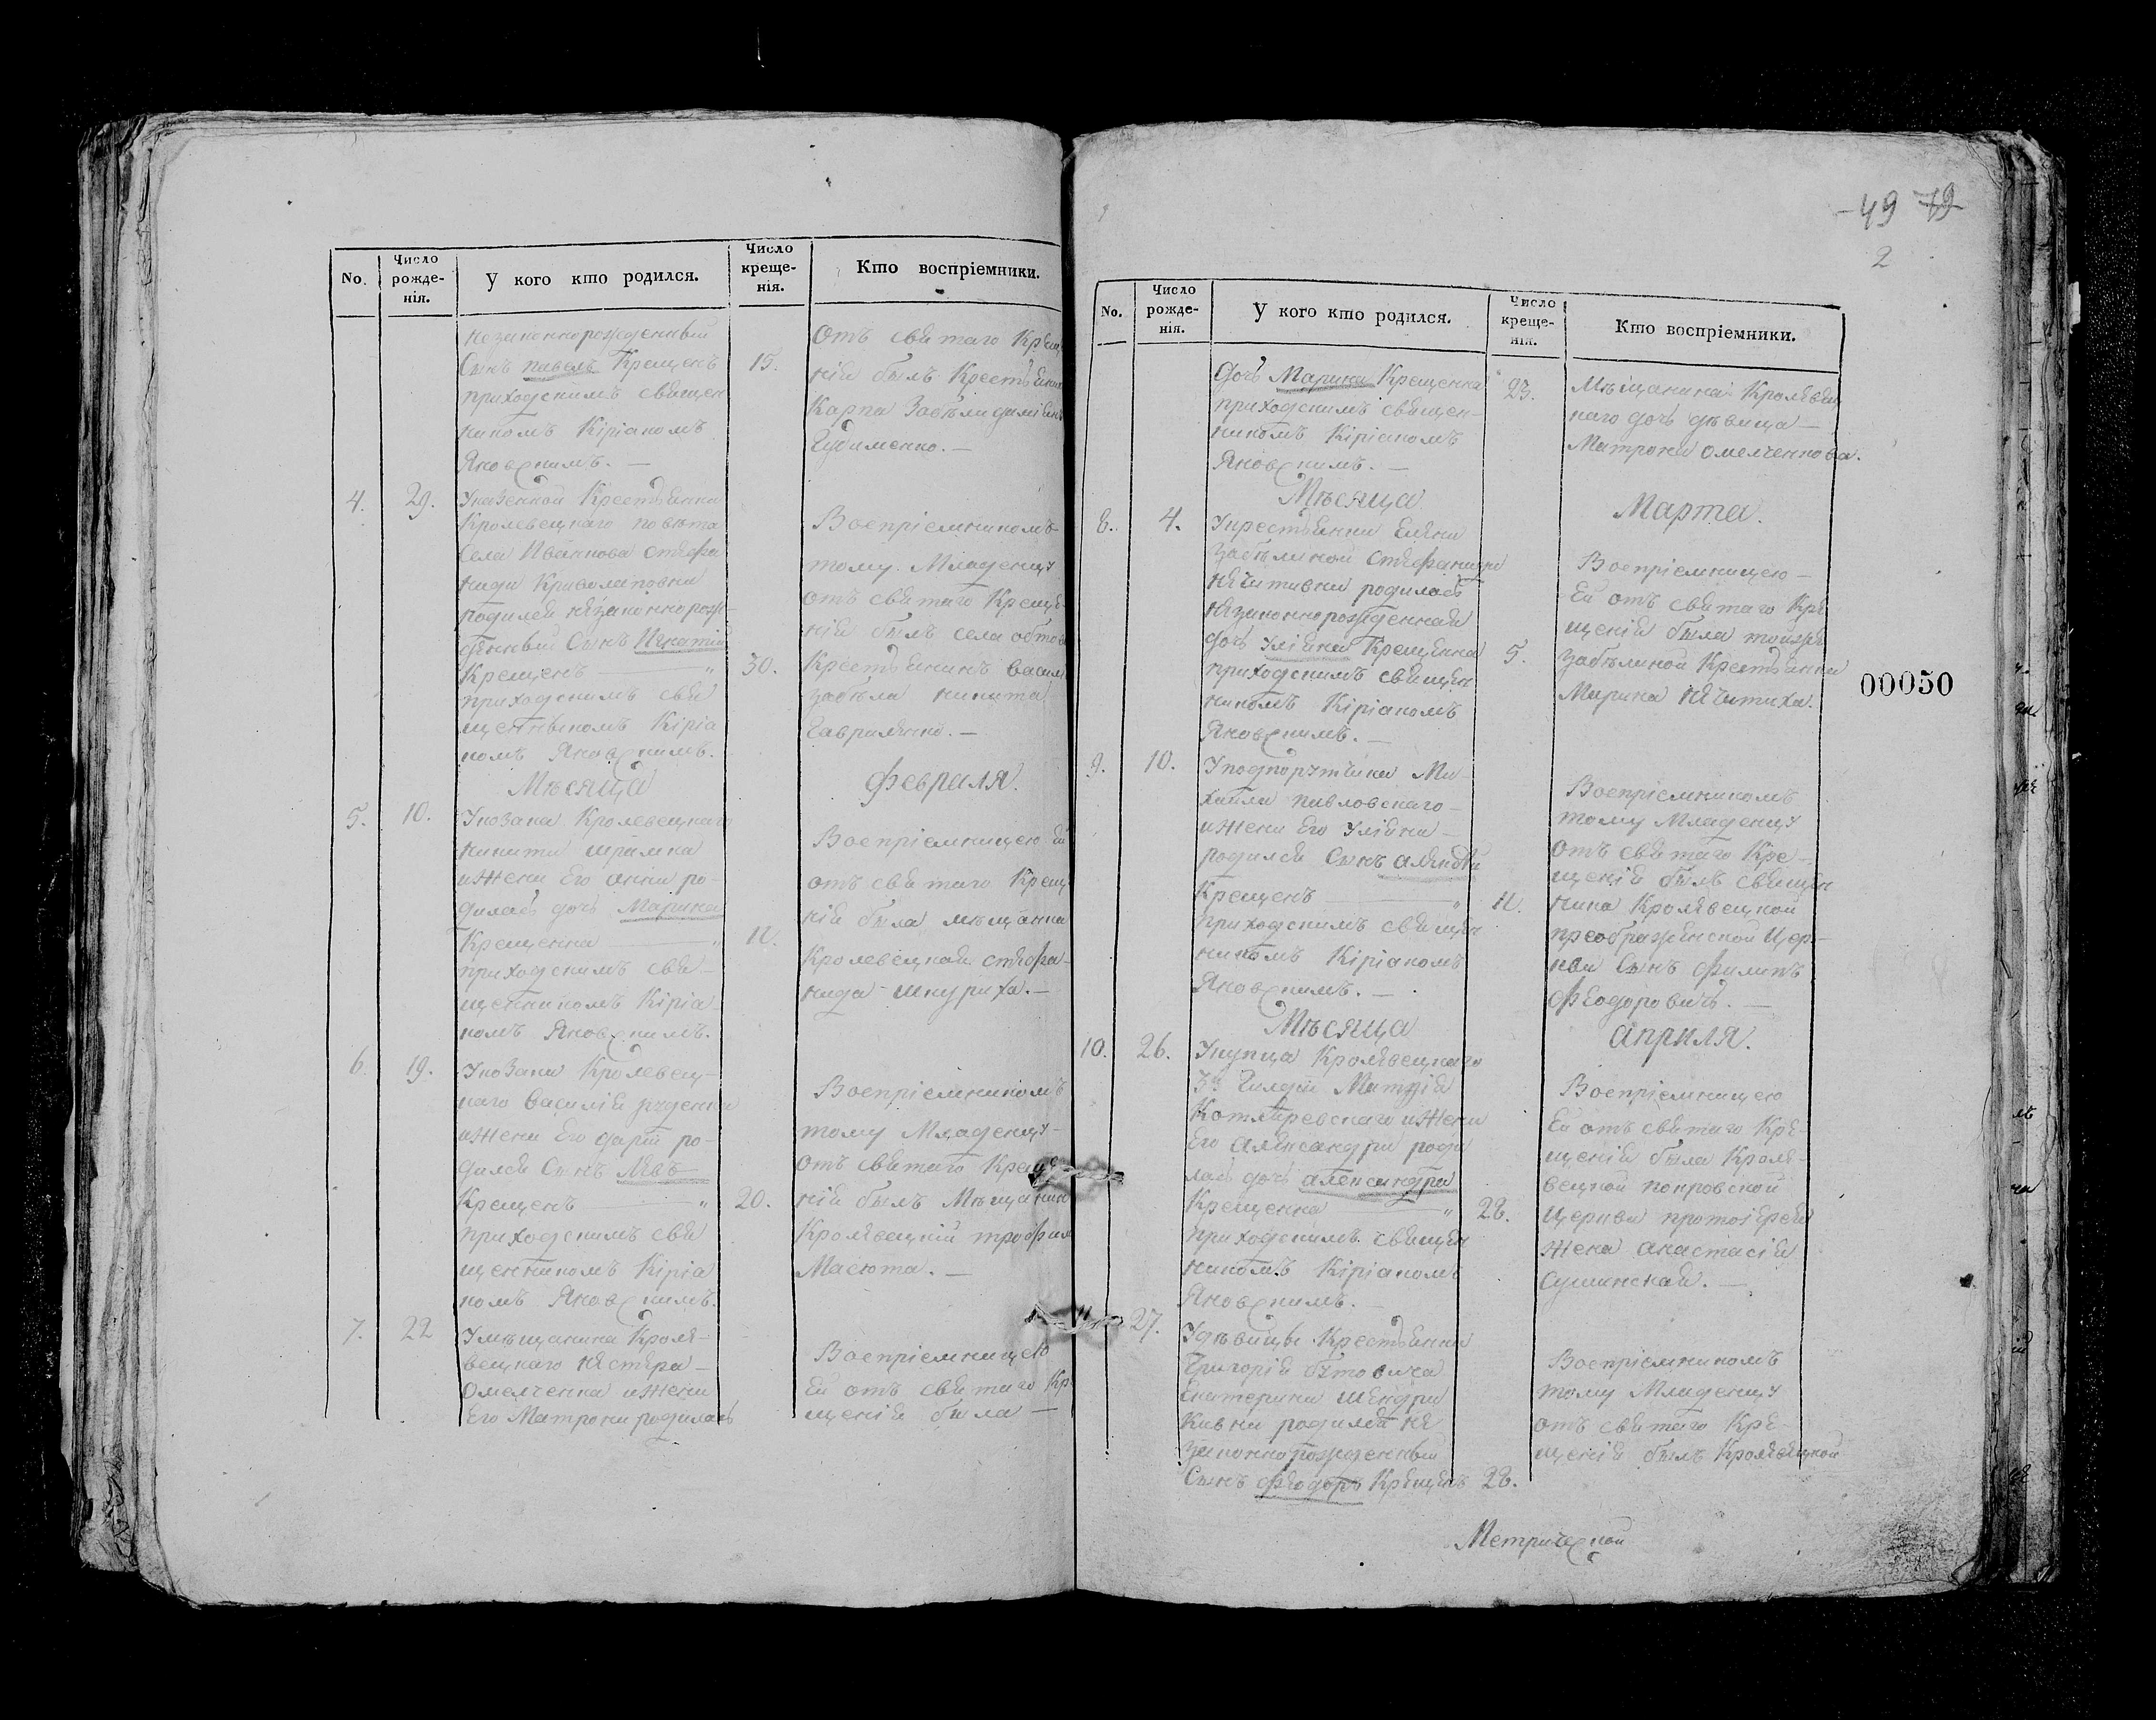 No.
Число рожде-нія.
У кого кто родился.
Число креще-нія.
Кто воспріемники.
незаконнорожденный
Сынъ павелъ Крещенъ 15.
приходскимъ священ
никомъ Кіріакомъ
Яновскимъ. —
отъ святаго Креще
нія былъ Крестьянин
Карпа Забѣли
4. 29.
Крестьянки
Кролевецкаго повѣта
села Иванкова стефа
ниди Криволаповни
родился незаконнорож-
денный Сынъ Игнатій
Крещенъ — „ 30.
приходскимъ свя
щенникомъ Кіріа
комъ Яновскимъ.
Воспріемникомъ
тому Младенцу
отъ святаго Креще
нія былъ села
Крестьянинъ васил
забѣла никита
Гавриленко. —
Мѣсяца Февраля.
5. 10.
Укозака Кролевецкаго
никити
ижени Его анни ро-
дилась дочь Марина
Крещенна — „ 11.
приходскимъ свя-
щенникомъ Кіріа
комъ Яновскимъ.
Воспріемницею Ей
отъ святаго Креще
нія была мѣщанка
Кролевецкая стефа-
нида шкуриха. —
6. 19.
Укозака Кролевец-
каго василія руденка
ижени Его даріи ро-
дился Сынъ Левъ
Крещенъ — „ 20.
приходскимъ свя
щенникомъ Кіріа
комъ Яновскимъ.
Воспріемникомъ
тому Младенцу-
отъ святаго Креще
нія былъ Мѣщанин
Кролевецкій трофим
Масюта. —
7. 22
Умѣщанина Кроле-
вецкаго нестера-
Омелченка ижени
Его Матрони родилась
Воспріемницею
Ей отъ святаго Кр
щенія была —
49 19
2
No.
Число рожде-нія.
У кого кто родился.
Число креще-нія.
Кто воспріемники.
Дочь Марина Крещенна 23.
приходскимъ священ-
никомъ Кіріакомъ
Яновскимъ. —
Мѣщанина Кролевец
каго дочь дѣвица —
Матрона омелченкова.
Мѣсяца Марта.
8. 4.
Укрестьянки Елени
Забѣлиной Стефаниди
нечитивни родилась
незаконнорожденная
дочь Уліяна Крещенна 5.
приходскимъ священ
никомъ Кіріакомъ
Яновскимъ. —
Воспріемницею —
Ей отъ святаго Кре
щенія была тойже
забѣлиной Крестьянка
Марина нечитиха.
00050
9. 10.
Уподпоручика Ми-
хаила павловскаго —
ижени Его Уліяни —
родился Сынъ алексѣй
Крещенъ — „ 11.
приходскимъ священ
никомъ Кіріакомъ
Яновскимъ. —
Воспріемникомъ
тому Младенцу
отъ святаго Кре-
щенія былъ священ
ника Кролевецкой
преображенской Цер-
кви Сынъ Филипъ
Феодоровичъ. —
Мѣсяца априля.
10. 26.
Укупца Кролевецкаго
3й Гилдіи Матвія
Котляревскаго ижени
Его александри роди
лась дочь александра
Крещенна — „ 28.
приходскимъ священ
никомъ Кіріакомъ
Яновскимъ.
Воспріемницею
Ей отъ святаго Кре-
щенія была Кроле-
вецкой покровской
Церкви протоіерея
жена анастасія
Сушинская. —
27.
Удѣвицы Крестьянки
Григорія
Екатерини
родился не
законнорожденный
Сынъ Феодоръ Крещенъ 28.
Воспріемникомъ
тому Младенцу
отъ святаго Кре-
щенія былъ Кролевецкой
Метрической